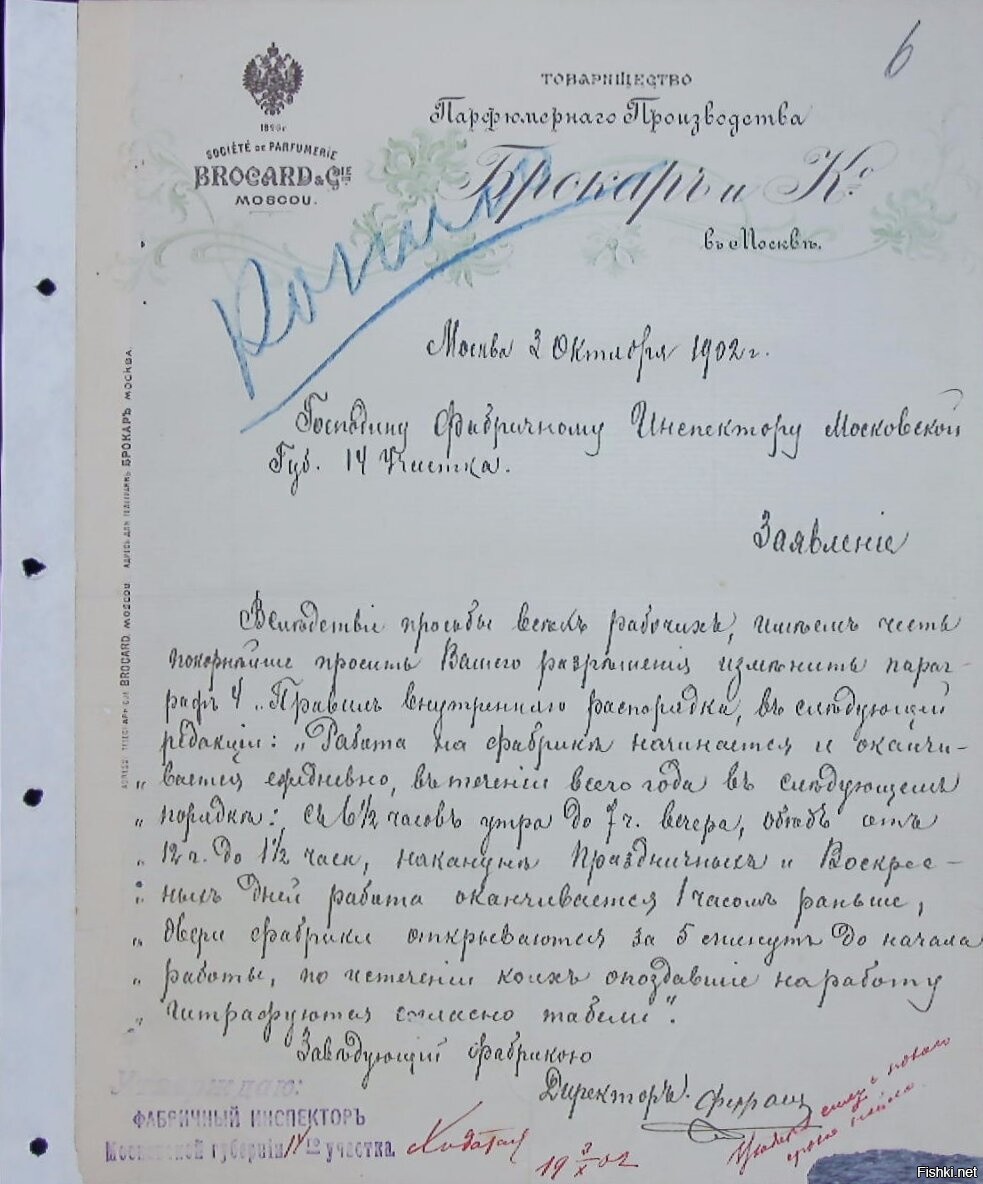 6
1896г
SOCIÉTÉ DE PARFUMERIE
BROCARD & CIE
MOSCOU.
ТОВАРИЩЕСТВО
Парфюмернаго Производства
Брокаръ и Ко
въ Москвѣ.
Копия
Москва 3 Октября 1902 г.
Господину Фабричному Инспектору Московской
Губ. 14 Участка.
Заявленіе
Вслѣдствіи просьбы всѣхъ рабочихъ, имѣемъ честь
покорнѣйше просить Вашего разрѣшенія измѣнить параг-
рафъ 4 „Правилъ внутренняго распорядка, въ слѣдующей
редакціи: „Работа на фабрикѣ начинается и оканчи-
„ вается ежедневно, въ теченіи всего года въ слѣдующемъ
„ порядкѣ: съ 6 1/2 часовъ утра до 7 ч. вечера, обѣдъ отъ
„ 12 ч. до 1 1/2 часа, наканунѣ Праздничныхъ и Воскрес-
„ ныхъ дней работа оканчивается 1 часомъ раньше,
„ двери фабрики открываются за 5 минутъ до начала
„ работы, по истеченіи коихъ опоздавшіе на работу
„ штрафуются согласно табели".
Завѣдующій фабрикою
Директоръ. Ферранъ
Утверждаю:
ФАБРИЧНЫЙ ИНСПЕКТОРЪ
Московской губерніи 14го участка.
19 3/X 02
АДРЕСЪ ДЛЯ ТЕЛЕГРАММЪ БРОКАРЪ МОСКВА.
BROCARD MOSCOU
Fishki.net